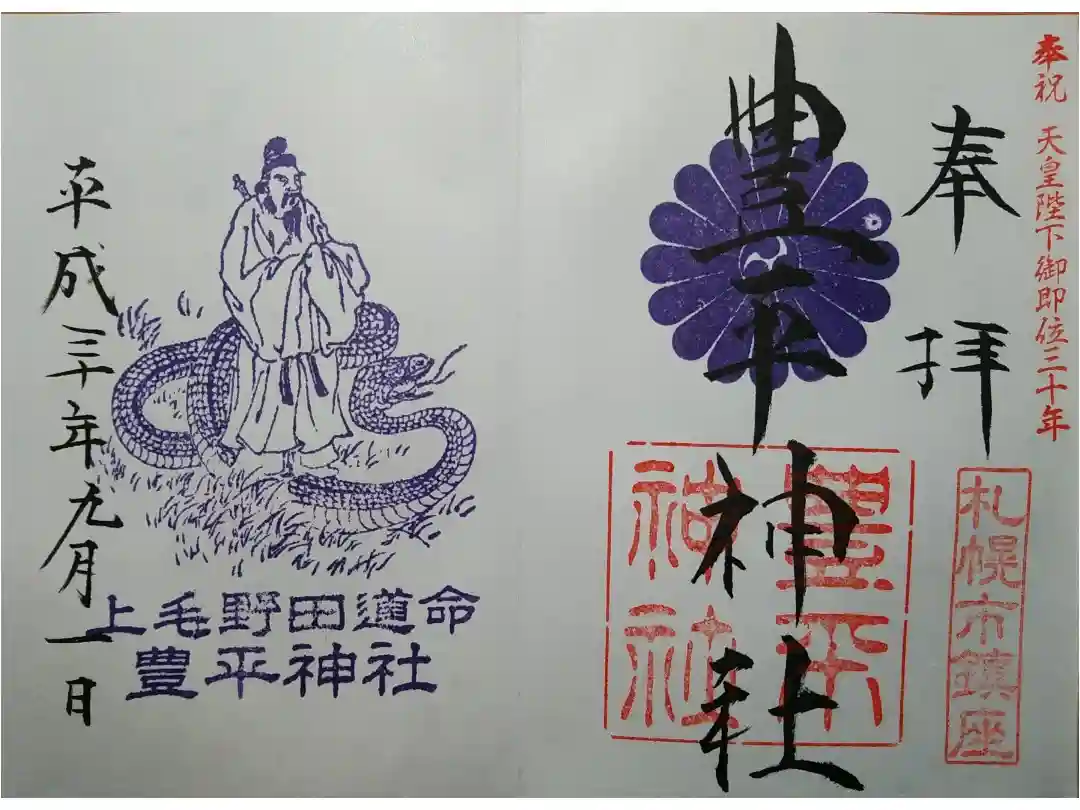 奉祝 天皇陛下御即位三十年
奉拝
札幌市鎮座
豊平神社
豊平
神社
上毛野田道命
豊平神社
平成三十年九月一日